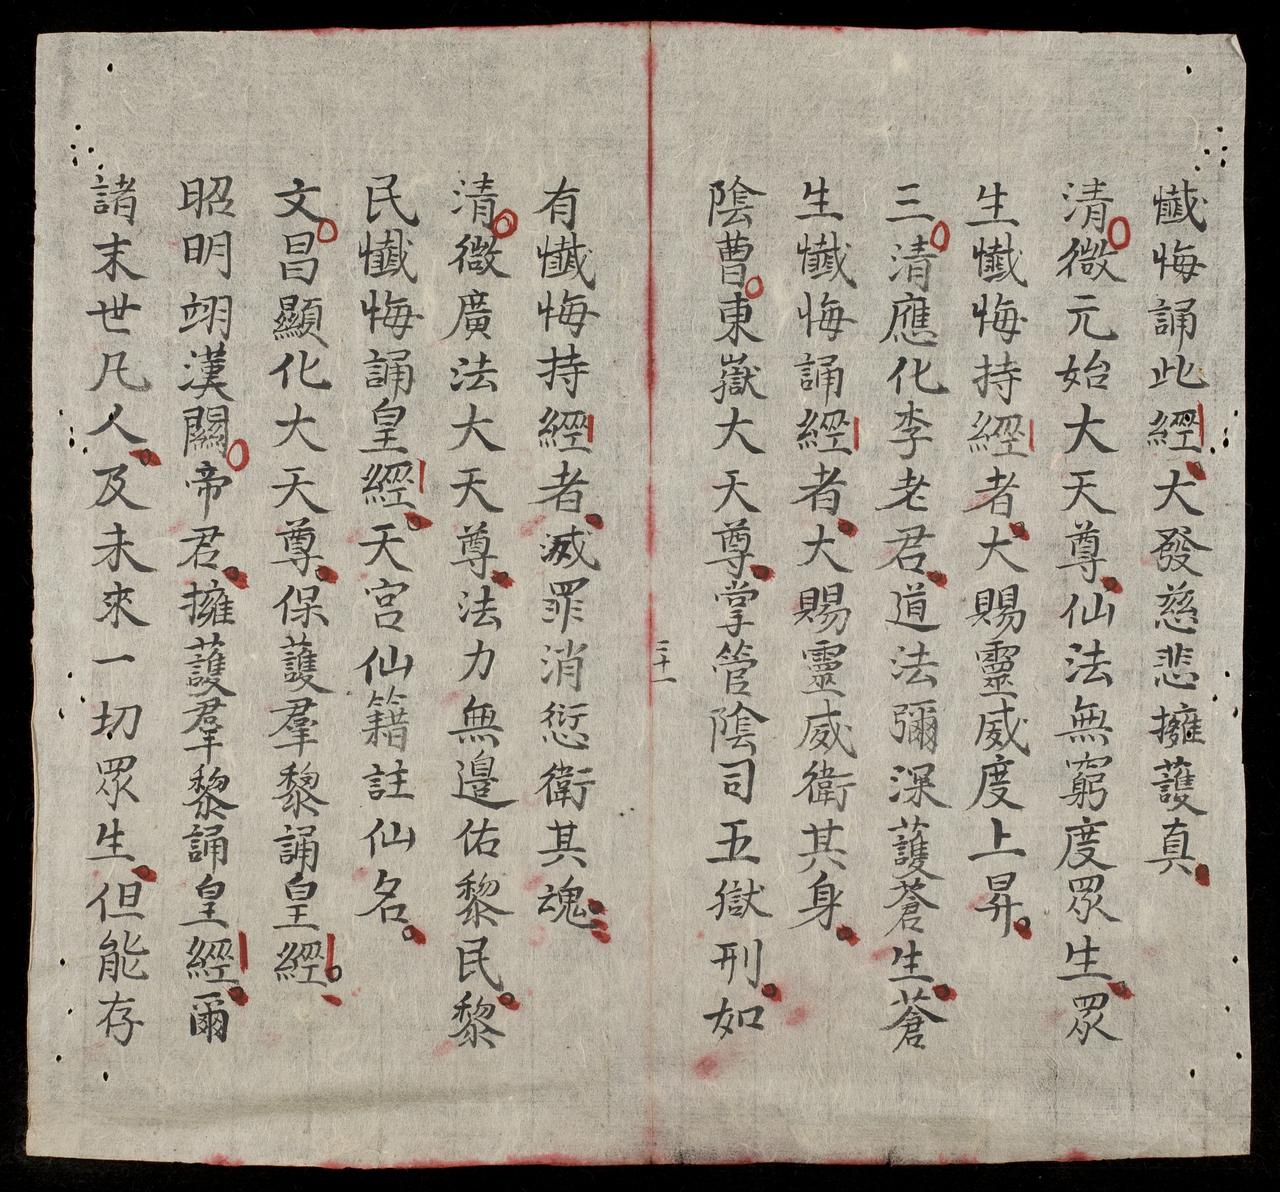 懺悔誦此經。大發慈悲擁護真。
清微元始大天尊。仙法無窮度眾生。眾
生懺悔持經者。大賜靈威度上昇。
三清應化李老君。道法彌深護蒼生。蒼
生懺悔誦經者。大賜靈威衛其身。
陰曹東嶽大天尊。掌管陰司五獄刑。如
三十一
有懺悔持經者。滅罪消愆衛其魂。
清微廣法大天尊。法力無邊佑黎民。黎
民懺悔誦皇經。天宮仙籍註仙名。
文昌顯化大天尊。保護羣黎誦皇經。
昭明翊漢關帝君。擁護羣黎誦皇經。爾
諸末世凡人。及未來一切眾生。但能存